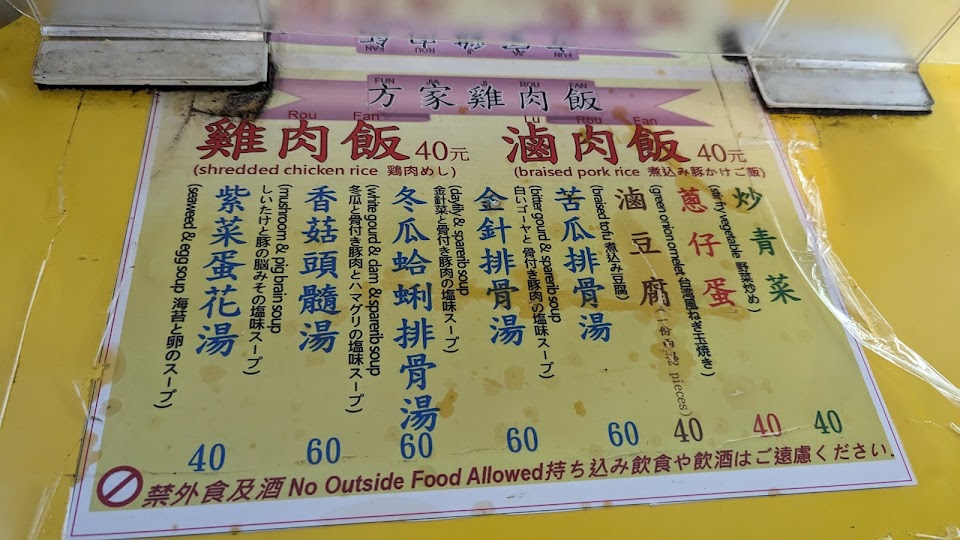 FUN JIA JI ROU FAN
方家雞肉飯
Rou Fan
雞肉飯 40元
(shredded chicken rice 鶏肉めし)
Lu Rou Fan
滷肉飯 40元
(braised pork rice 煮込み豚かけご飯)
炒青菜
野菜炒め)
40
蔥仔蛋
台湾風ねぎ玉焼き)
40
滷豆腐
(braised tofu 煮込み豆腐)
pieces)
40
苦瓜排骨湯
(bitter gourd & sparerib soup
白いゴーヤと骨付き豚肉の塩味スープ)
60
金針排骨湯
(daylily & sparerib soup
金針菜と骨付き豚肉の塩味スープ)
60
冬瓜蛤蜊排骨湯
(white gourd & clam & sparerib soup
冬瓜と骨付き豚肉とハマグリの塩味スープ)
60
香菇頭髓湯
(mushroom & pig brain soup
しいたけと豚の脳みその塩味スープ)
60
紫菜蛋花湯
(seaweed & egg soup 海苔と卵のスープ)
40
禁外食及酒 No Outside Food Allowed 持ち込み飲食や飲酒はご遠慮ください.